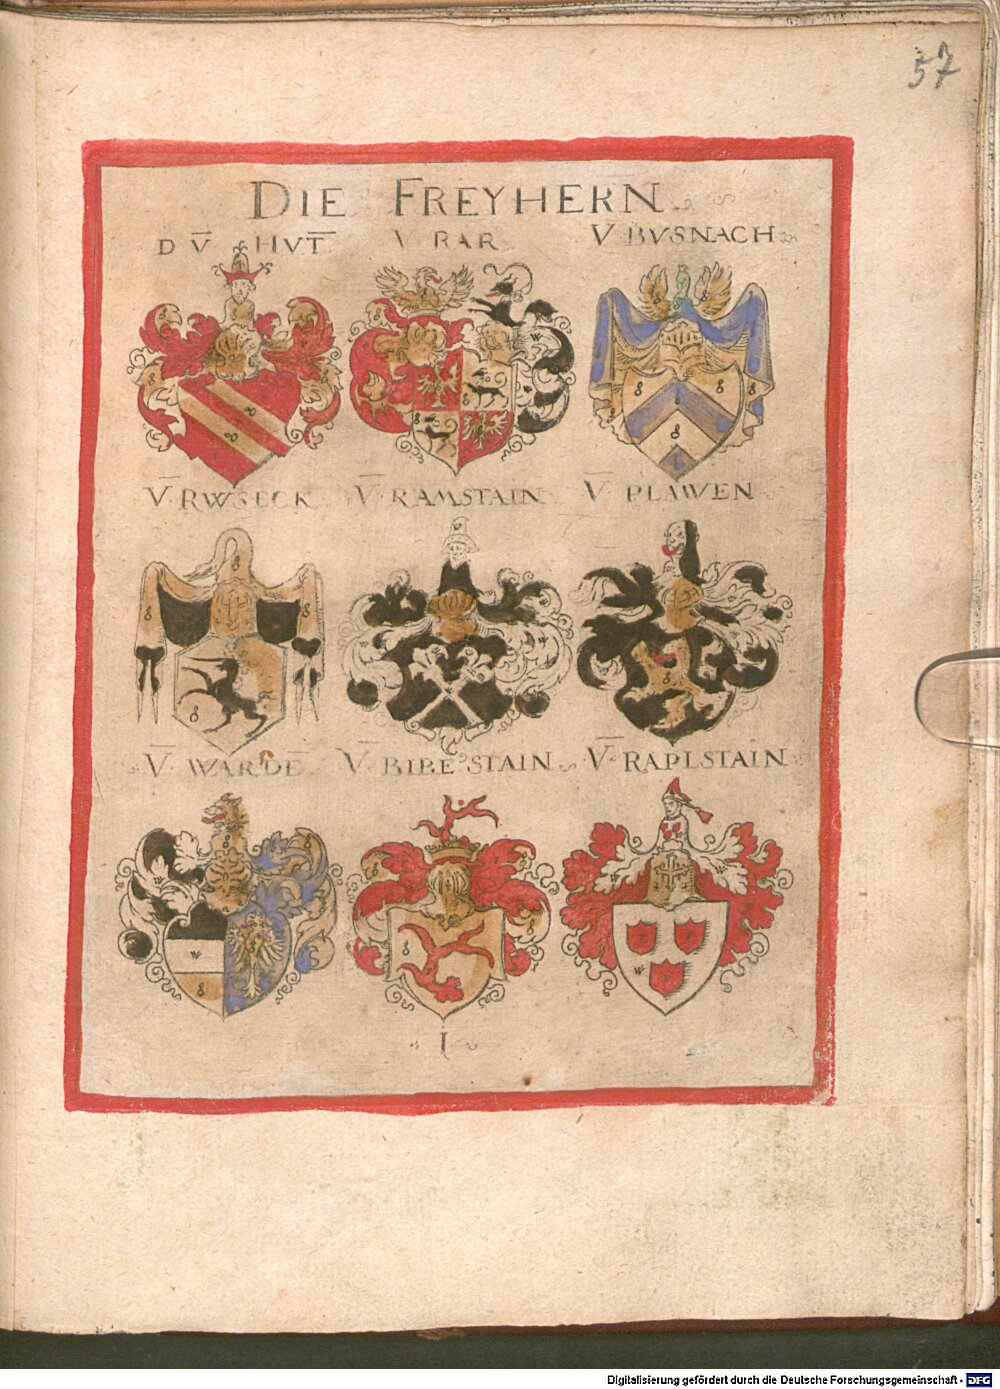 57
DIE FREYHERN
D V̄ HVT̄ V̄ BAR V̄ BVSNACH
V̄ RWSECK V̄ RAMSTAIN V̄ PLAWEN
V̄ WARDE V̄ BIBESTAIN V̄ RAPLSTAIN
I
Digitalisierung gefördert durch die Deutsche Forschungsgemeinschaft - DFG